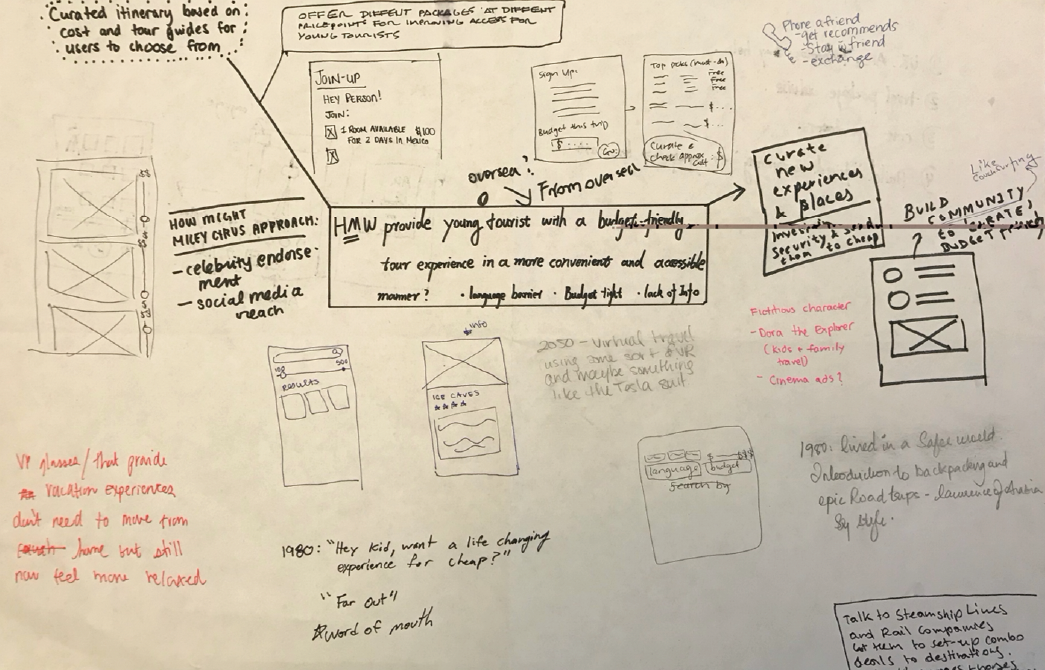 Curated itinerary based on
cost and tour guides for
users to choose from
OFFER DIFFENT PACKAGES AT DIFFENT
PRICEPOINTS FOR IMPROVING ACCESS FOR
YOUNG TOURISTS
Phone a friend
- get recommends
- Stay w friend
- exchange
JOIN-UP
HEY PERSON!
JOIN:
1 ROOM AVAILABLE $100
FOR 2 DAYS IN MEXICO
Sign Up:
Budget this trip
$
Go!
Top picks (must-do)
Free
Free
Free
$
$
Curate &
check approx.
cost $
oversea?
From oversea
HMW provide young tourist with a budget-friendly
tour experience in a more convenient and accessible
manner? • language barrier • Budget tight • lack of Info
HOW MIGHT
MILEY CIRUS APPROACH:
- celebrity endorse
ment
- social media
reach
curate
new
experiences
& places
security to send
them to cheap
Like
Couchsurfing
BUILD
COMMUNITY
to CREATE
BUDGET
Fictitious character
- Dora the Explorer
(kids + family
travel)
- Cinema ads?
2050 - Virtual travel
using some sort of VR
and maybe something
like the Tesla suit
RESULTS
info
ICE CAVES
language
budget
Search by
1980: lived in a Safer world.
Introduction to backpacking and
epic Road trips - lawrence of Arabia
VR glasses/that provide
vacation experiences
don't need to move from
home but still
now feel more relaxed
1980: "Hey kid, want a life changing
experience for cheap?"
"Far out"
word of mouth
Talk to Steamship Lines
and Rail Companies
Get them to set-up combo
deals to destinations.